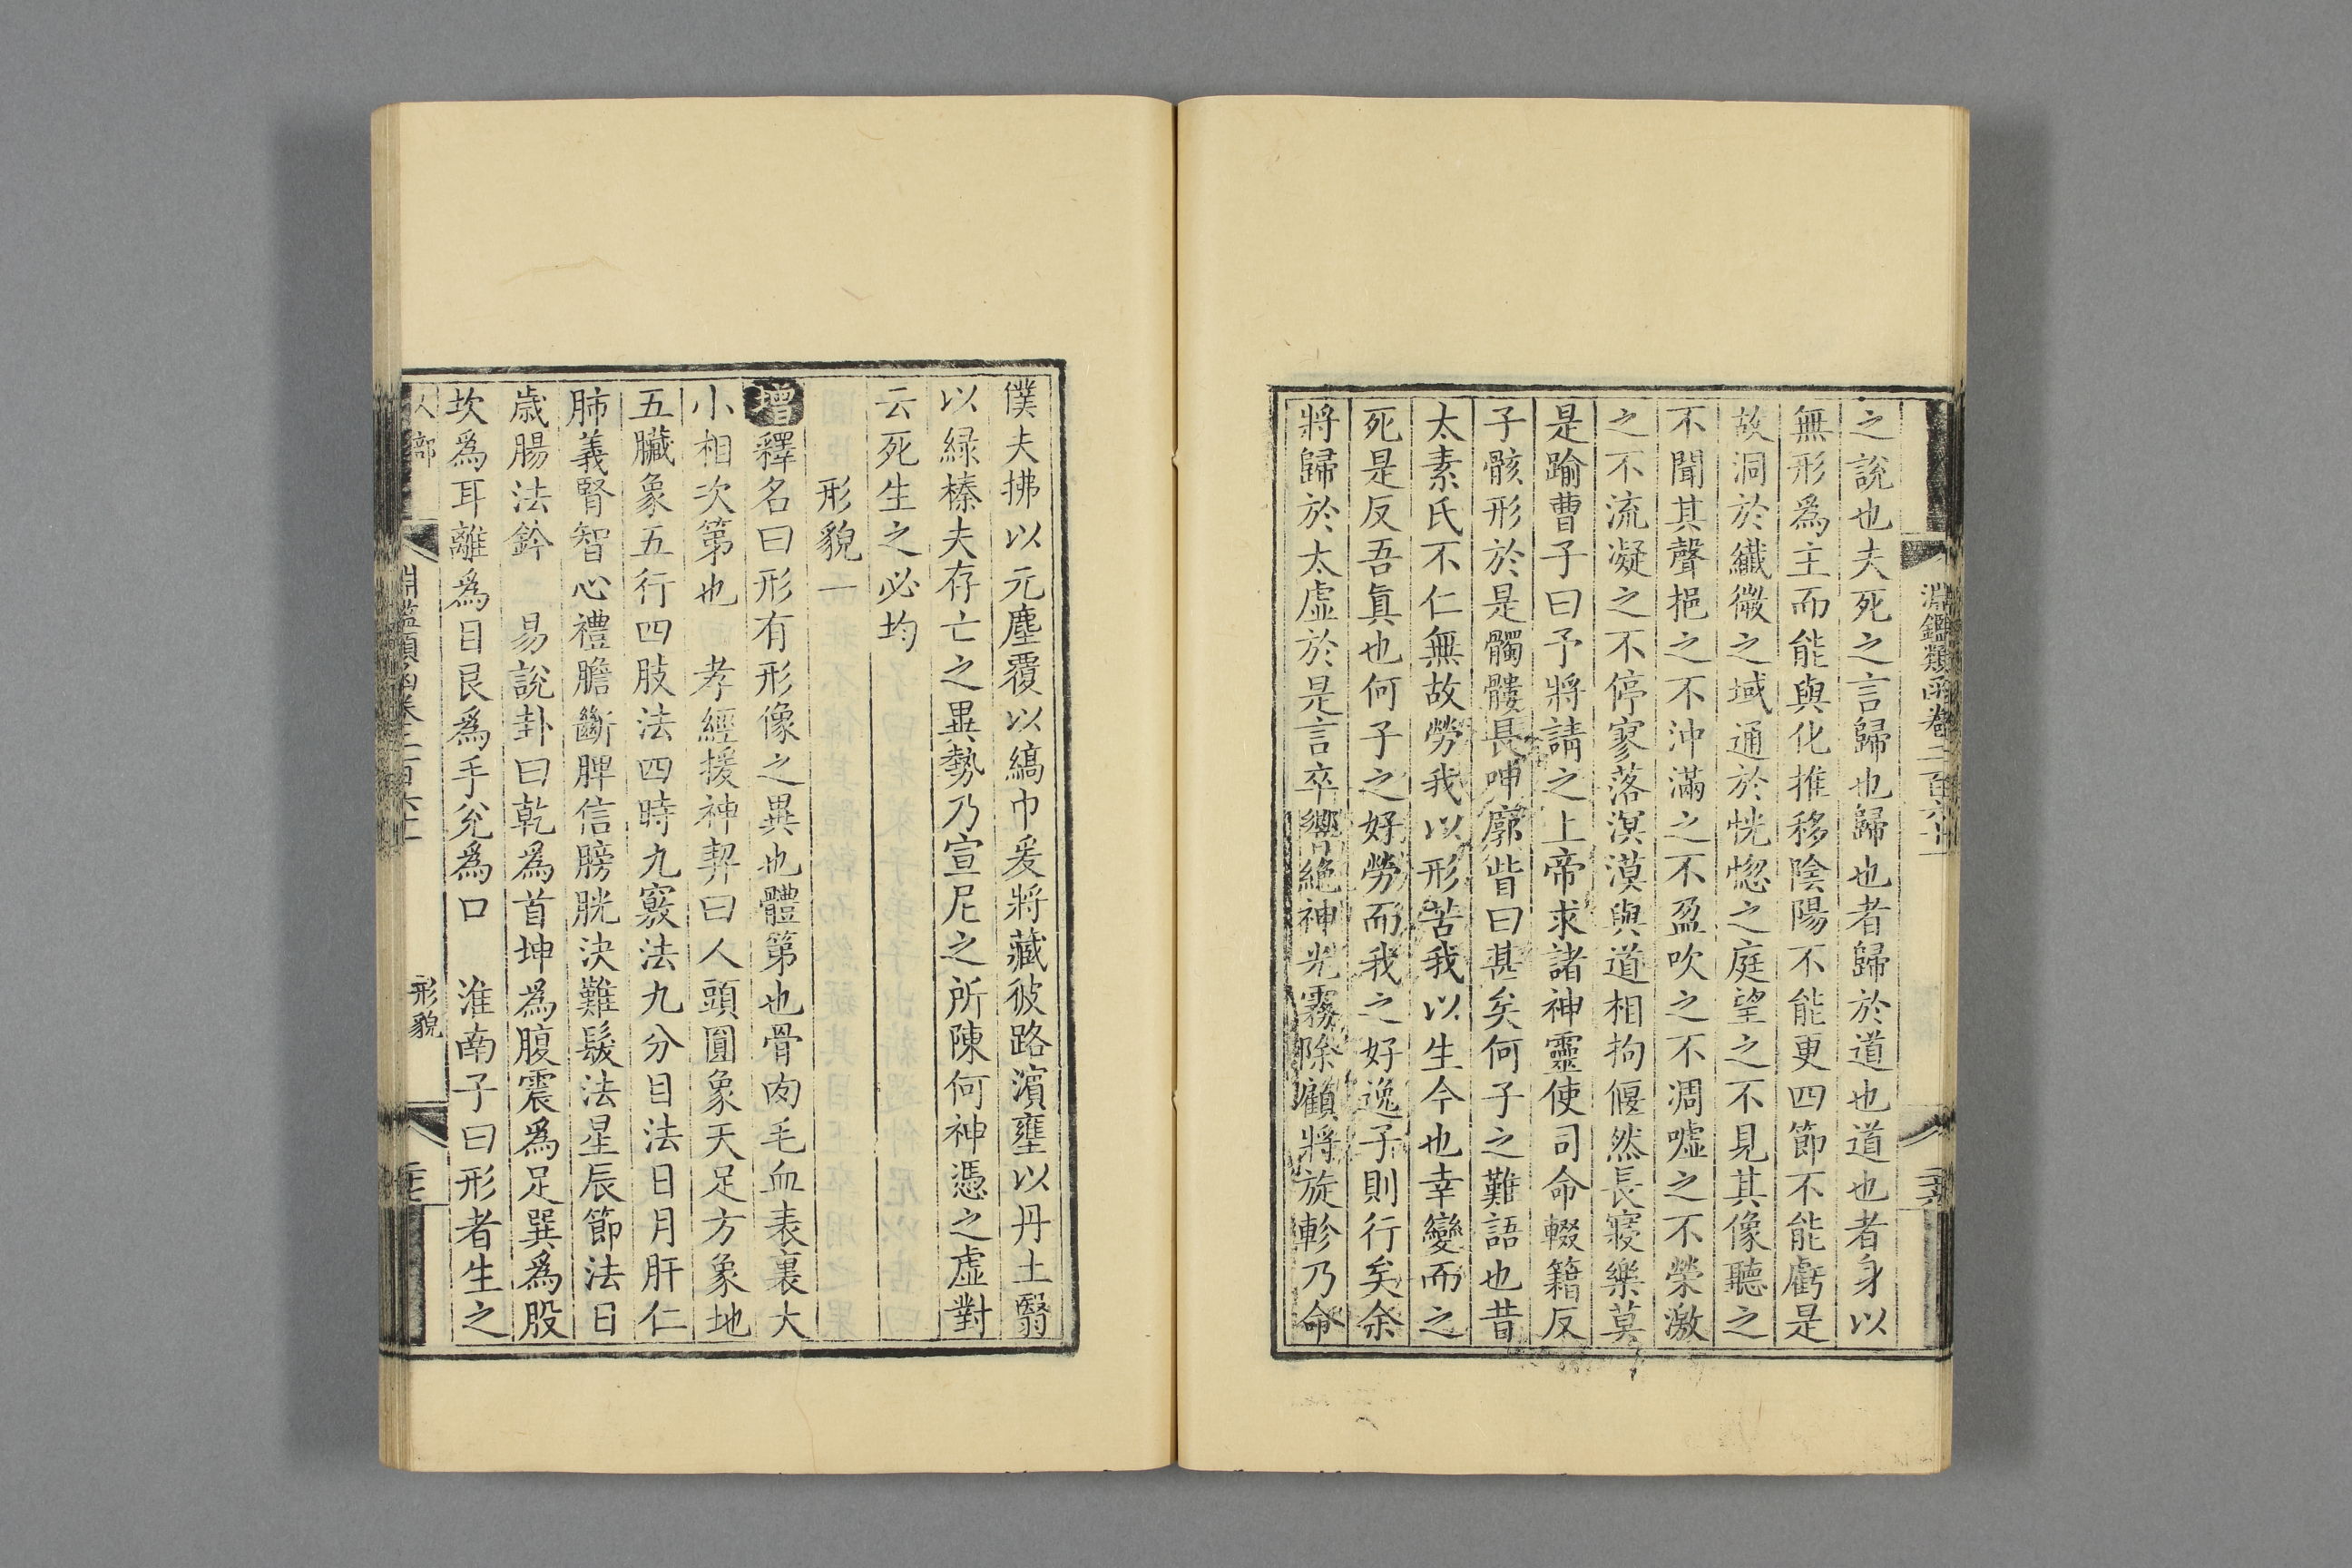 淵鑑類函卷二百六十一
之說也夫死之言歸也歸也者歸於道也道也者身以
無形爲主而能與化推移陰陽不能更四節不能虧是
故洞於纖微之域通於恍惚之庭望之不見其像聽之
不聞其聲挹之不沖滿之不盈吹之不凋噓之不榮激
之不流凝之不停寥落溟漠與道相拘偃然長寢樂莫
是踰曹子曰予將請之上帝求諸神靈使司命輟籍反
子骸形於是髑髏長呻廓眥曰甚矣何子之難語也昔
太素氏不仁無故勞我以形苦我以生今也幸變而之
死是反吾眞也何子之好勞而我之好逸子則行矣余
將歸於太虛於是言卒響絶神光霧除顧將旋軫乃命
僕夫拂以元塵覆以縞巾爰將藏彼路濵壅以丹土翳
以緑榛夫存亡之異勢乃宣尼之所陳何神憑之虛對
云死生之必均
形貌一
增釋名曰形有形像之異也體第也骨肉毛血表裏大
小相次第也 孝經援神契曰人頭圓象天足方象地
五臟象五行四肢法四時九竅法九分目法日月肝仁
肺義腎智心禮膽斷脾信膀胱決難髮法星辰節法日
歳腸法鈐 易說卦曰乾爲首坤爲腹震爲足巽爲股
坎爲耳離爲目艮爲手兊爲口 淮南子曰形者生之
人部 淵鑑類函卷二百六十一 形貌